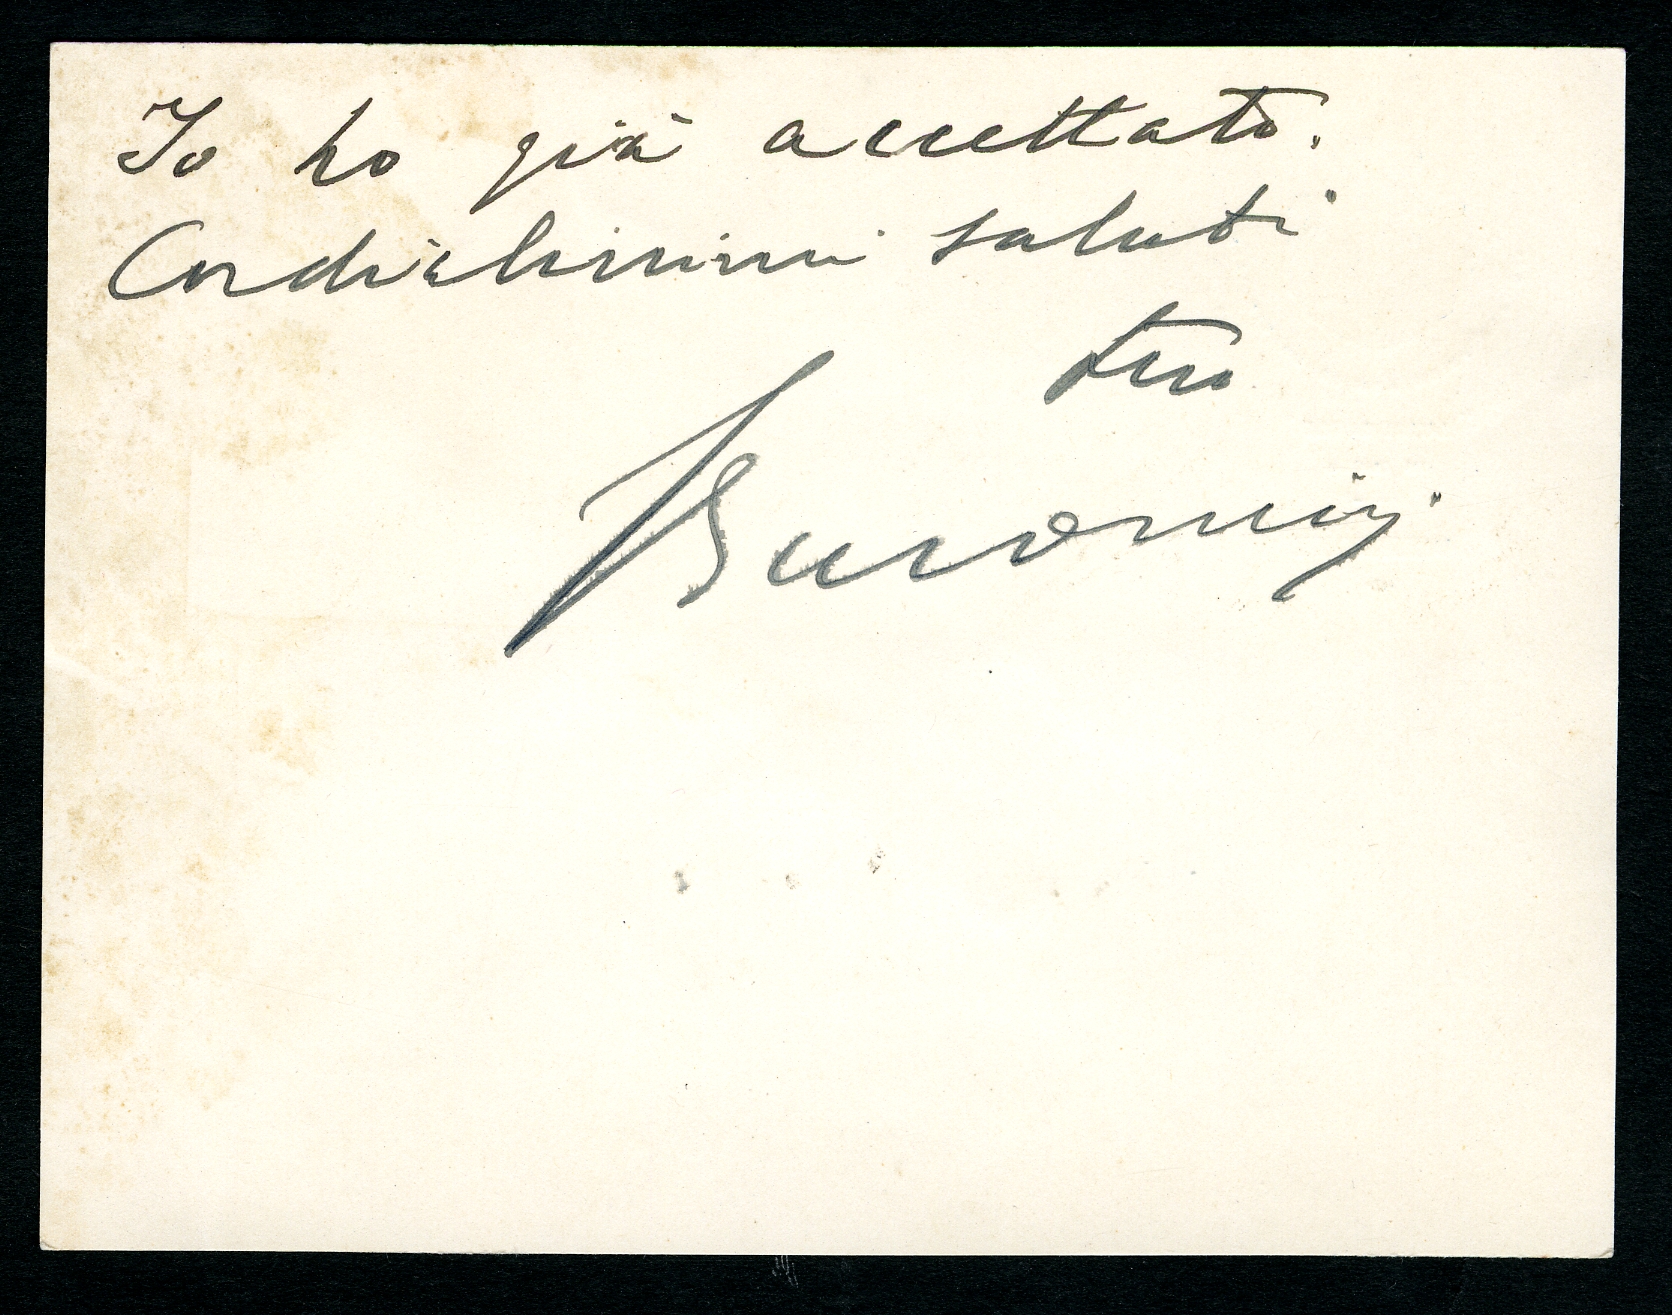 Io ho già accettato.
Cordialissimi saluti
tuo